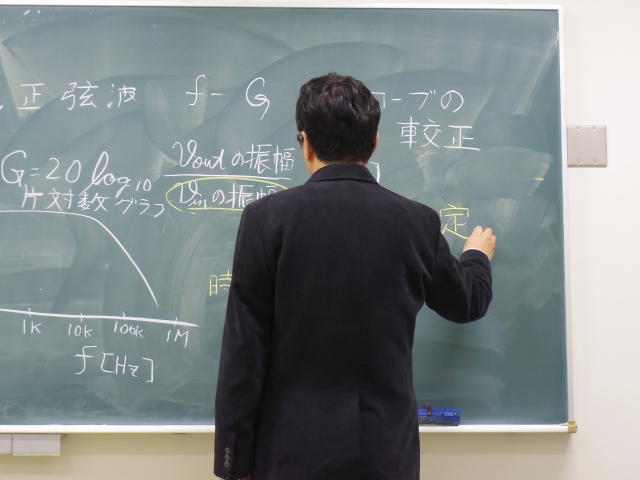 正弦波 f-G
ーブの
較正
G=20 log10 Voutの振幅
Vinの振幅
片対数グラフ
定
時
1K 10K 100k 1M
f [Hz]